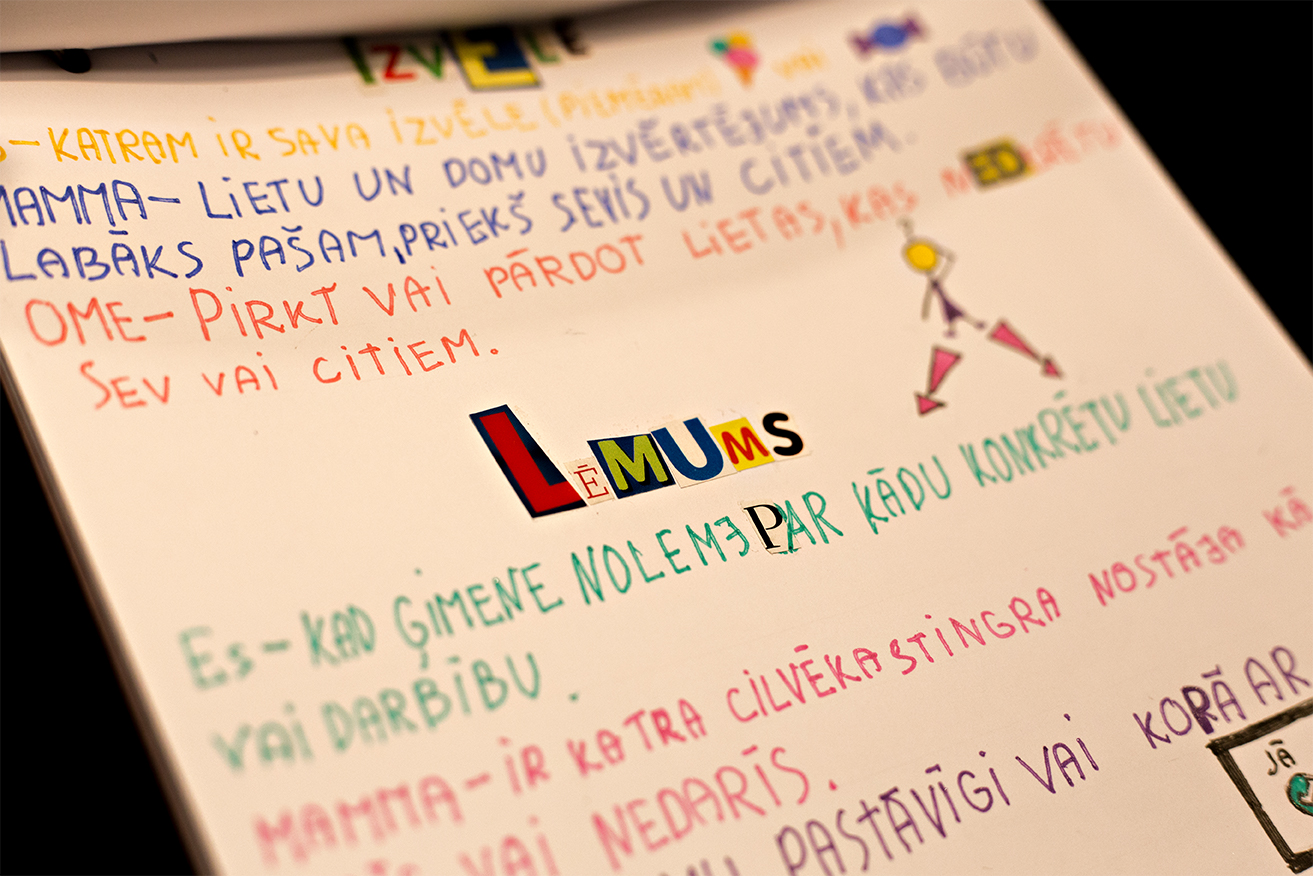 IZVĒLE
ES - KATRAM IR SAVA IZVĒLE (PIEMĒRAM) VAI
MAMMA - LIETU UN DOMU IZVĒRTĒJUMS, KAS BŪTU
LABĀKS PAŠAM, PRIEKŠ SEVIS UN CITIEM.
OME - PIRKT VAI PĀRDOT LIETAS, KAS
SEV VAI CITIEM.
LĒMUMS
ES - KAD ĢIMENE NOLEMJ PAR KĀDU KONKRĒTU LIETU
VAI DARBĪBU.
MAMMA - IR KATRA CILVĒKA STINGRA NOSTĀJA KĀ
VAI NEDARĪS.
PASTĀVĪGI VAI KOPĀ AR
JĀ